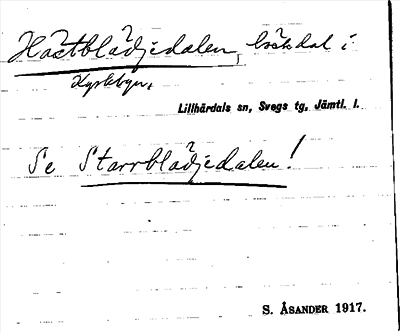 Hästblådjedalen, bäckdal i
Kyrkbyn,
Lillhärdals sn, Svegs tg, Jämtl. l.
Se Starrblådjedalen!
S. ÅSANDER 1917.